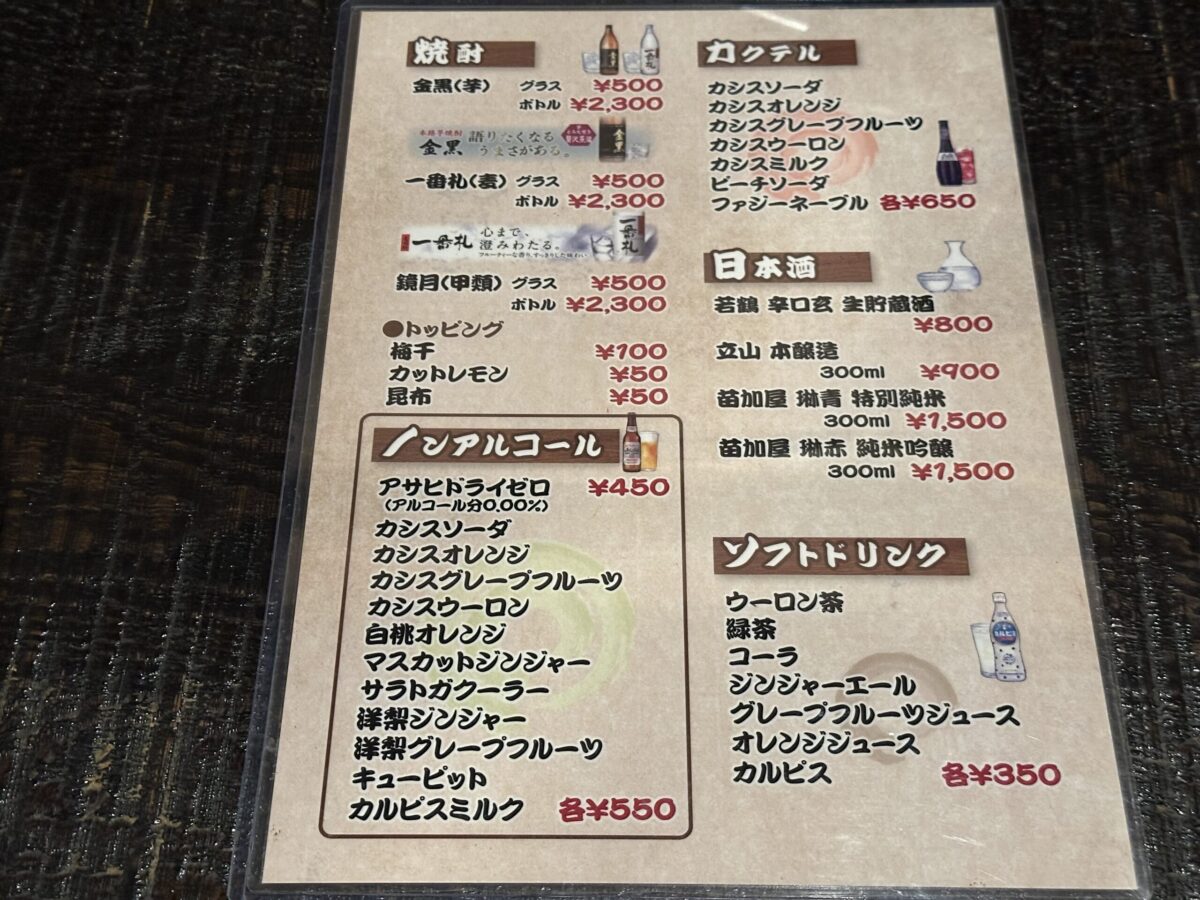 焼酎
金黒(芋) グラス ¥500
ボトル ¥2,300
本格芋焼酎
金黒 語りたくなる
うまさがある。
金黒
一番札(麦) グラス ¥500
ボトル ¥2,300
一番札 心まで、
澄みわたる。
フルーティーな香り、すっきりした味わい
一番札
鏡月(甲類) グラス ¥500
ボトル ¥2,300
●トッピング
梅干 ¥100
カットレモン ¥50
昆布 ¥50
ノンアルコール
アサヒドライゼロ ¥450
(アルコール分0.00%)
カシスソーダ
カシスオレンジ
カシスグレープフルーツ
カシスウーロン
白桃オレンジ
マスカットジンジャー
サラトガクーラー
洋梨ジンジャー
洋梨グレープフルーツ
キューピット
カルピスミルク 各¥550
カクテル
カシスソーダ
カシスオレンジ
カシスグレープフルーツ
カシスウーロン
カシスミルク
ピーチソーダ
ファジーネーブル 各¥650
日本酒
若鶴 辛口玄 生貯蔵酒
¥800
立山 本醸造
300ml ¥900
苗加屋 琳青 特別純米
300ml ¥1,500
苗加屋 琳赤 純米吟醸
300ml ¥1,500
ソフトドリンク
ウーロン茶
緑茶
コーラ
ジンジャーエール
グレープフルーツジュース
オレンジジュース
カルピス 各¥350